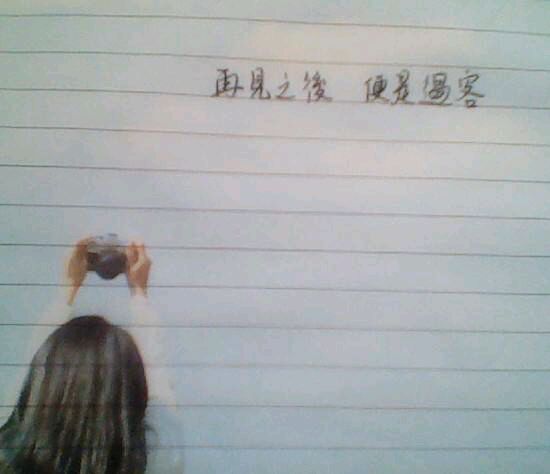 再見之後 便是過客